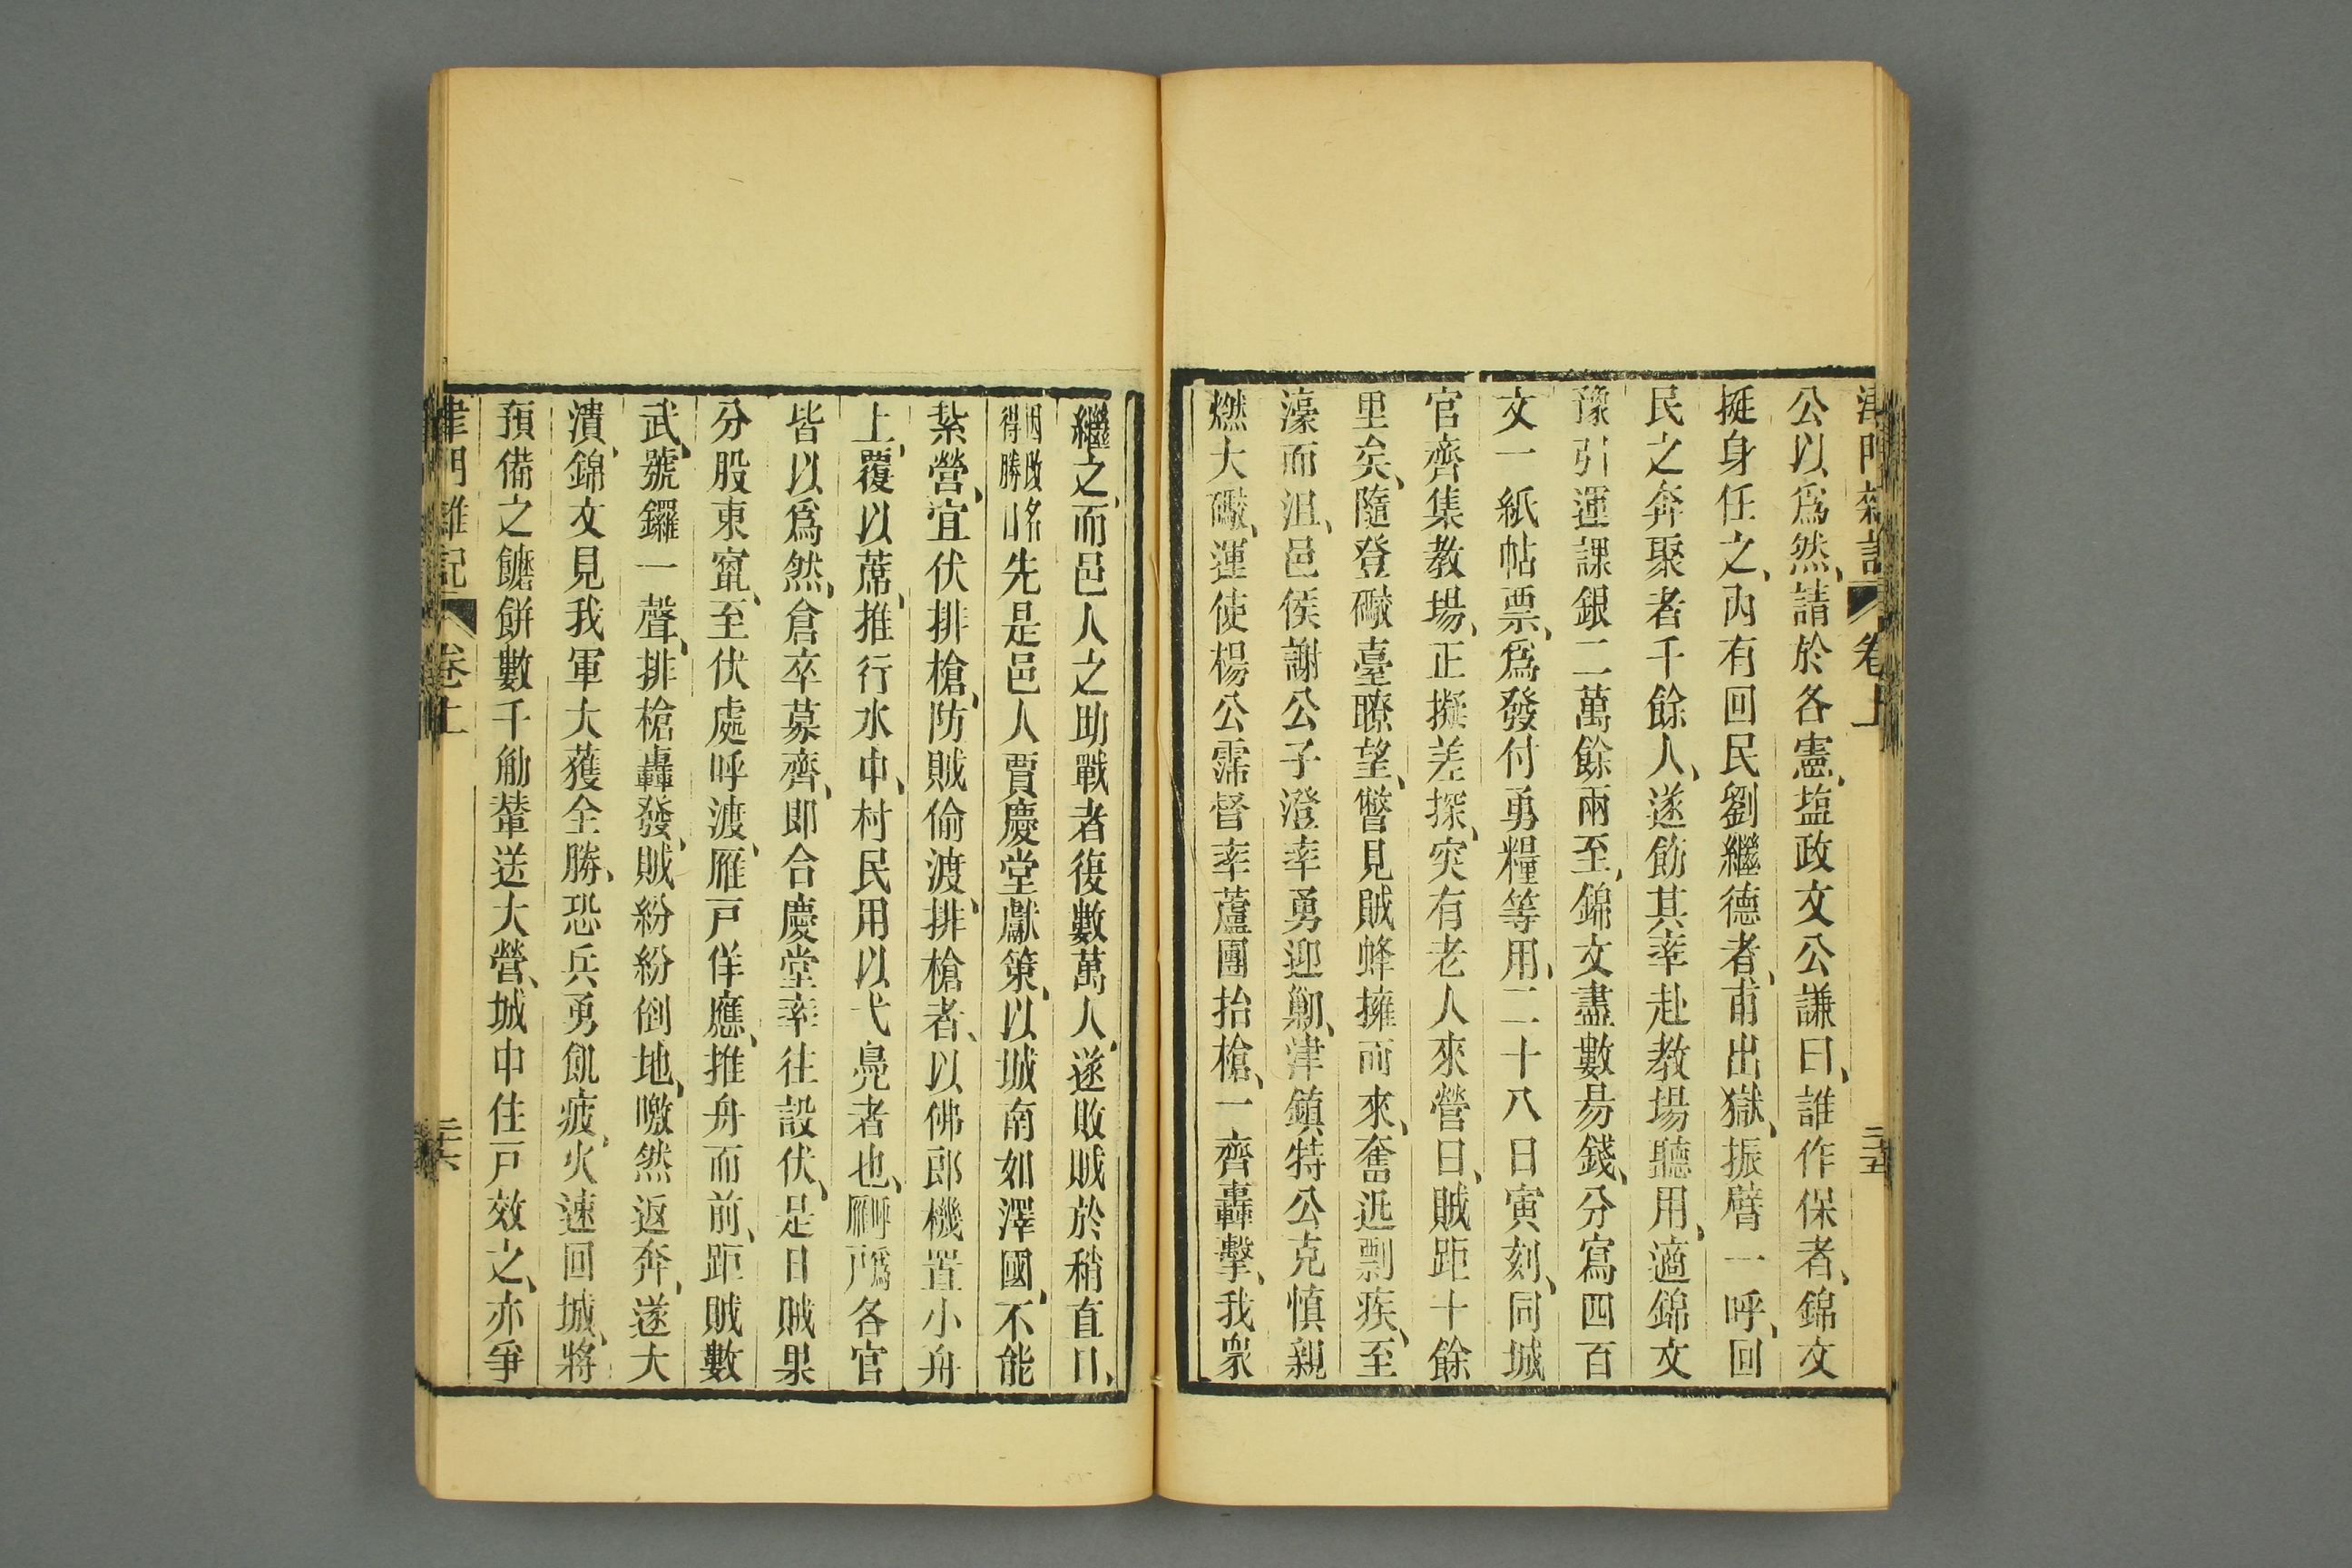 津門雜記 卷上 二十五
公以爲然、請於各憲、塩政文公謙曰、誰作保者、錦文
挺身任之、內有回民劉繼德者、甫出獄、振臂一呼、回
民之奔聚者千餘人、遂飭其率赴教場聽用、適錦文
豫引運課銀二萬餘兩至、錦文盡數易錢、分寫四百
文一紙帖票、爲發付勇糧等用、二十八日寅刻、同城
官齊集教場、正擬差探、突有老人來營曰、賊距十餘
里矣、隨登礮臺瞭望、瞥見賊蜂擁而來、奮迅剽疾、至
濠而沮、邑侯謝公子澄率勇迎剿、津鎮特公克慎親
燃大礮、運使楊公霈督率蘆團抬槍、一齊轟擊、我衆
繼之、而邑人之助戰者復數萬人、遂敗賊於稍直口、
因敗名得勝口先是邑人賈慶堂獻策、以城南如澤國、不能
紮營、宜伏排槍、防賊偷渡、排槍者、以佛郎機置小舟
上、覆以蓆、推行水中、村民用以弋鳧者也、呼爲雁戶各官
皆以爲然、倉卒募齊、即合慶堂率往設伏、是日賊果
分股東竄、至伏處呼渡、雁戸佯應、推舟而前、距賊數
武、號鑼一聲、排槍轟發、賊紛紛倒地、噭然返奔、遂大
潰、錦文見我軍大獲全勝、恐兵勇飢疲、火速回城、將
預備之饝餅數千觔輦送大營、城中住戸效之、亦爭
津門雜記 卷上 二十六